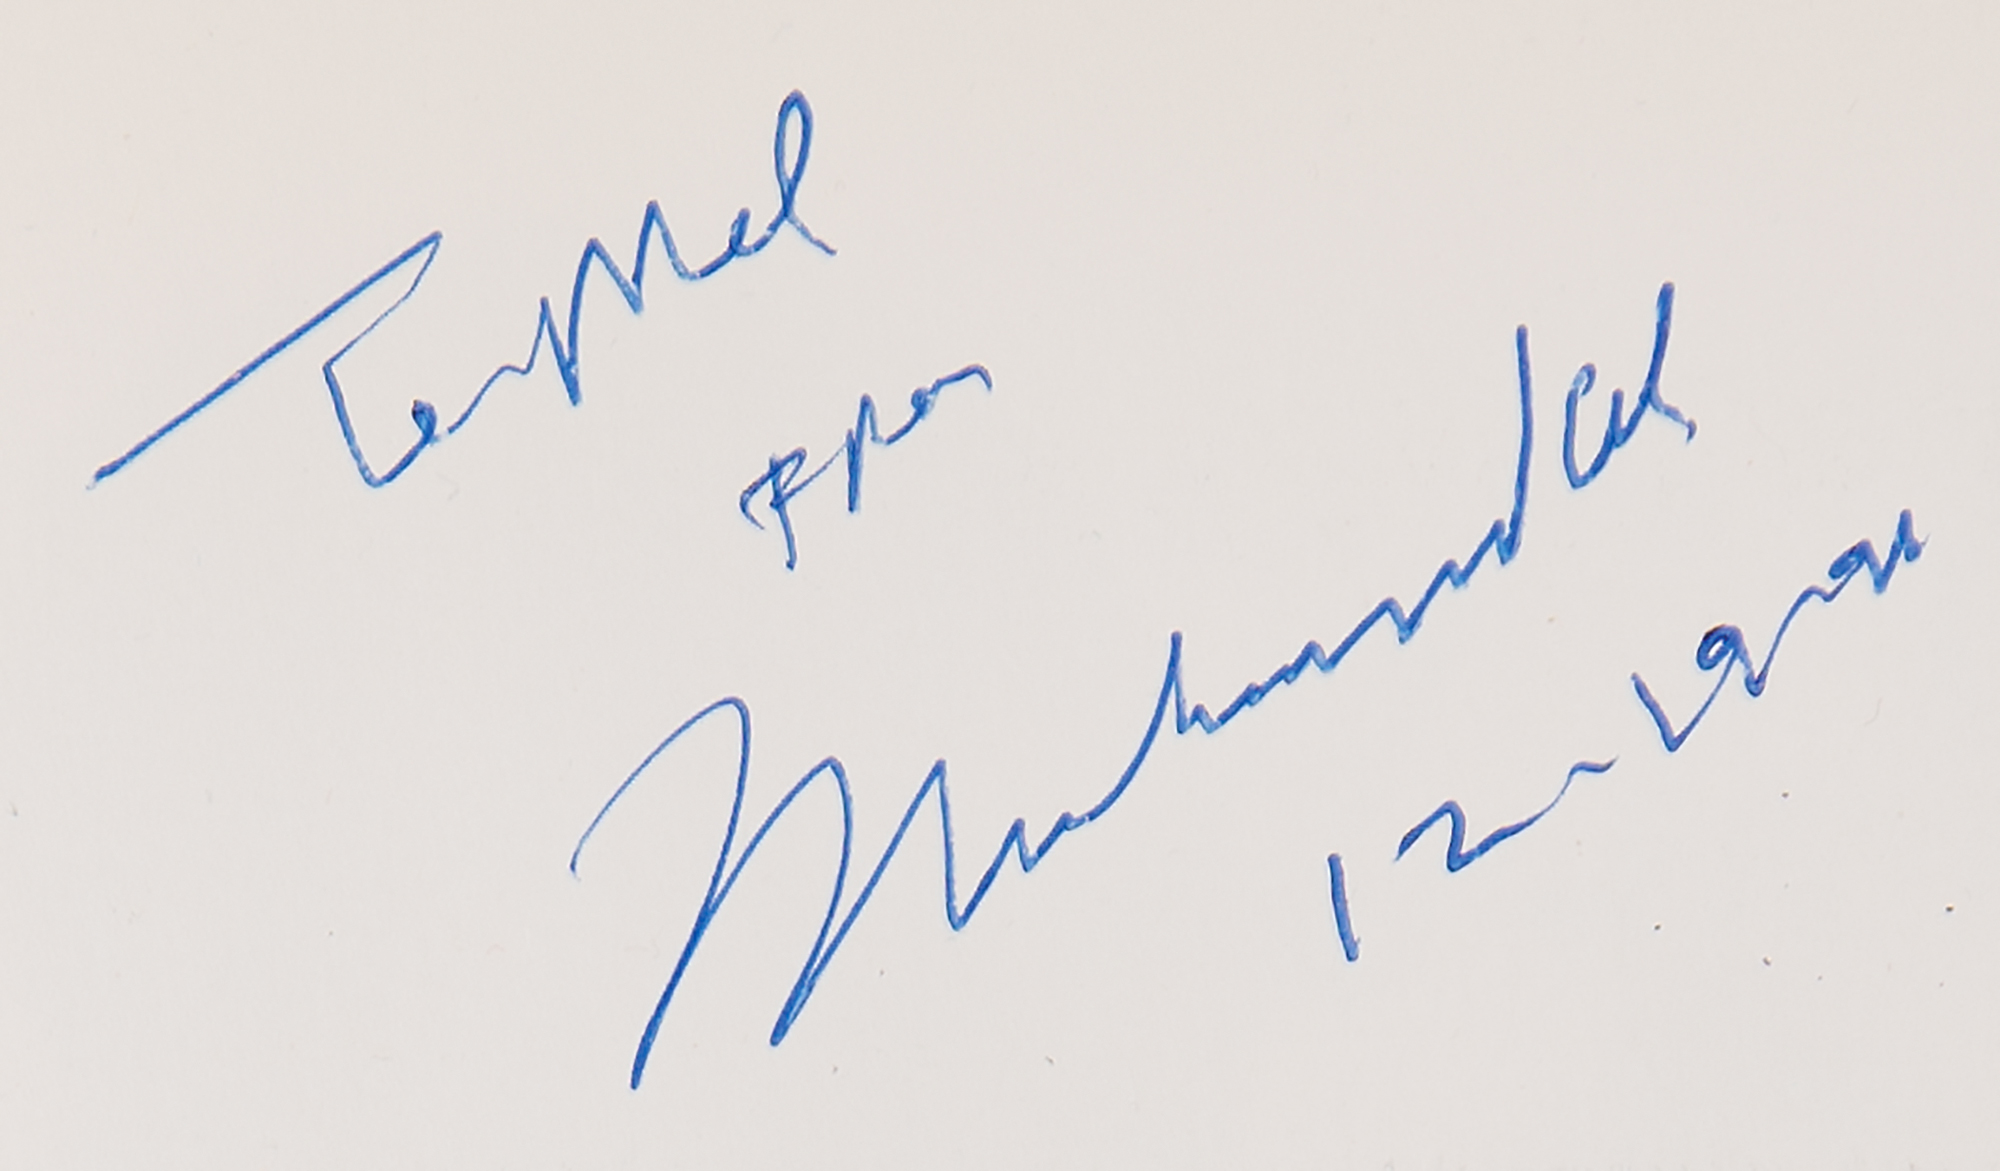 From
Muhammad Ali
12-19-91